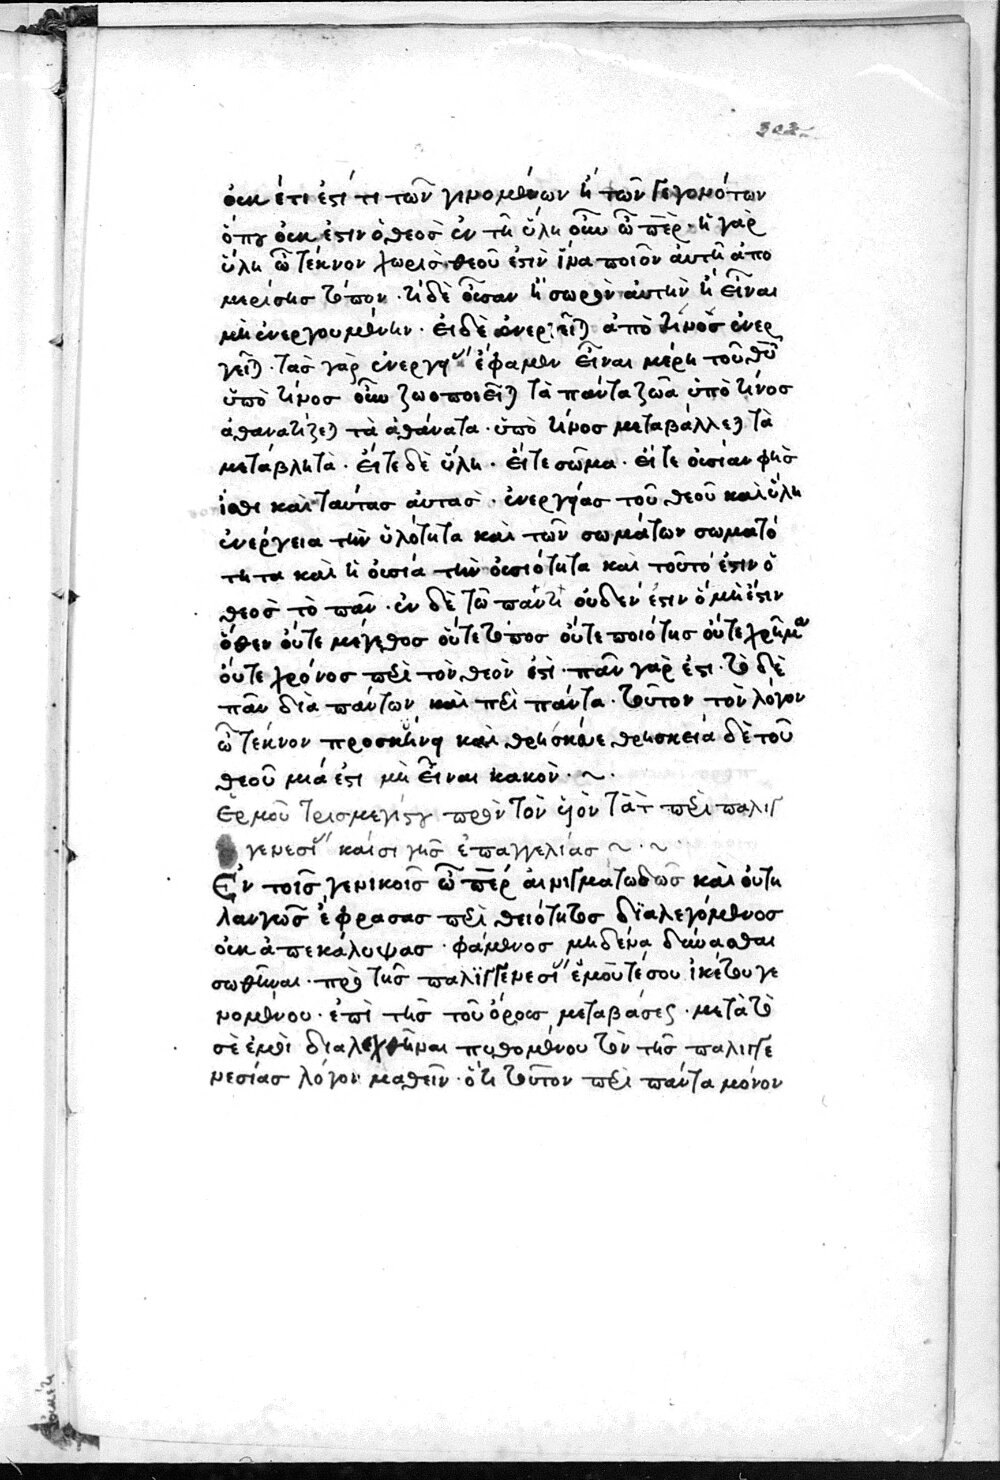 οὐκ έτι ἐστί τι τῶν γινομένων ἢ τῶν γεγονότων
ὅπου οὐκ ἔστιν ὁ θεὸς ἐν τῇ ὕλῃ οὖν ὦ πέρ· ἡ γὰρ
ὕλη ὦ τέκνον χωρὶς θεοῦ ἐστὶν ἵνα ποῖον αὐτῇ ἀπο
μερίσῃς τόπον· τί δὲ οὖσαν ἢ σωρὸν αὐτὴν ἢ εἶναι
μὴ ἐνεργουμένην· εἰ δὲ ἐνεργεῖται ἀπὸ τίνος ἐνερ
γεῖται· τὰς γὰρ ἐνεργείας ἔφαμεν εἶναι μέρη τοῦ θεοῦ
ὑπὸ τίνος οὖν ζωοποιεῖται τὰ πάντα ζῶα ὑπὸ τίνος
ἀθανατίζεται τὰ ἀθάνατα· ὑπὸ τίνος μεταβάλλεται τὰ
μετάβλητὰ· εἴτε δὲ ὕλη· εἴτε σῶμα· εἴτε οὐσίαν φῂς
ἴσθι καὶ ταύτας αὐτὰς· ἐνεργείας τοῦ θεοῦ καὶ ὕλη
ἐνέργεια τὴν ὑλότητα καὶ τῶν σωμάτων σωματό
τητα καὶ ἡ οὐσία τὴν οὐσιότητα καὶ τοῦτό ἐστιν ὁ
θεὸς τὸ πᾶν· ἐν δὲ τῷ παντὶ οὐδεν ἔστιν ὃ μὴ ἔστιν
ὅθεν οὔτε μέγεθος οὔτε τόπος οὔτε ποιότης οὔτε χρῆμα
οὔτε χρόνος περὶ τὸν θεόν ἐστι· πᾶν γὰρ ἐστι· τὸ δὲ
πᾶν διὰ πάντων καὶ περὶ πάντα· τοῦτον τὸν λόγον
ὦ τέκνον προσκύνει καὶ θρήσκευε θρησκεία δὲ τοῦ
θεοῦ μιά ἐστι μὴ εἶναι κακὸν· ~·
Ἑρμοῦ τρισμεγίστου πρὸς τὸν υἱὸν Τὰτ περὶ παλιγ
γενεσίας καὶ σιγῆς ἐπαγγελίας ~·~
Ἐν τοῖς γενικοῖς ὦ πέρ αἰνιγματωδῶς καὶ οὐ τη
λαυγῶς ἔφρασας περὶ θειότητος διαλεγόμενος
οὐκ ἀπεκάλυψας· φάμενος μηδένα δύνασθαι
σωθῆναι· πρὸ τῆς παλιγγενεσίας ἐμοῦ τέ σου ἱκέτου γε
νομένου· ἐπὶ τῆς τοῦ ὄρους μεταβάσεως· μετὰ τὸ
σὲ ἐμοὶ διαλεχθῆναι πυθομένου τὸν τῆς παλιγγε
νεσίας λόγον μαθεῖν· ὅτι τοῦτον περὶ πάντα μόνον